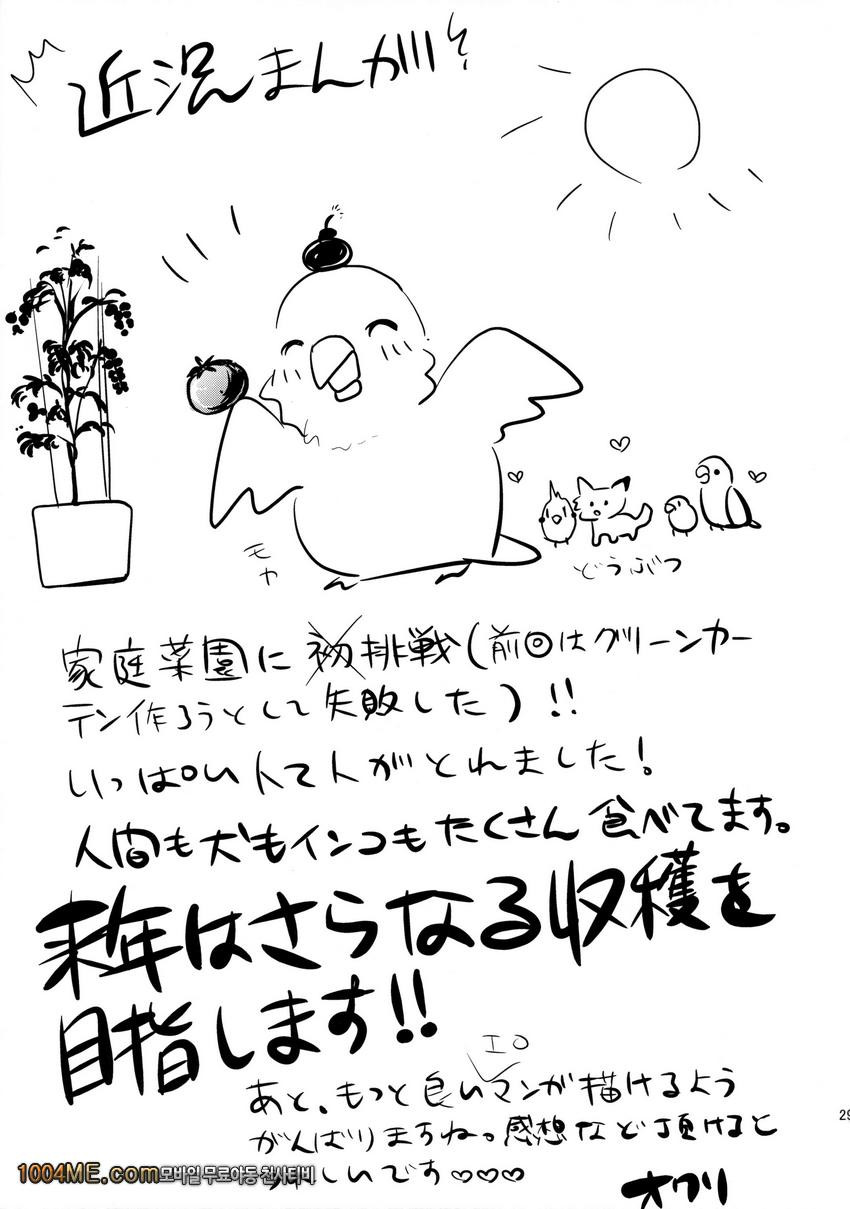 近況まんが
モヤ
どうぶつ
家庭菜園に初挑戦(前回はグリーンカー
テン作ろうとして失敗した)!!
いっぱいトマトがとれました!
人間も犬もインコもたくさん食べてます。
来年はさらなる収穫を
目指します!!
エロ
あと、もっと良いマンガ描けるよう
がんばりますね。感想など頂けると
しいです♡♡♡
オワリ
29
1004ME.com모바일 무료야동 천사티비